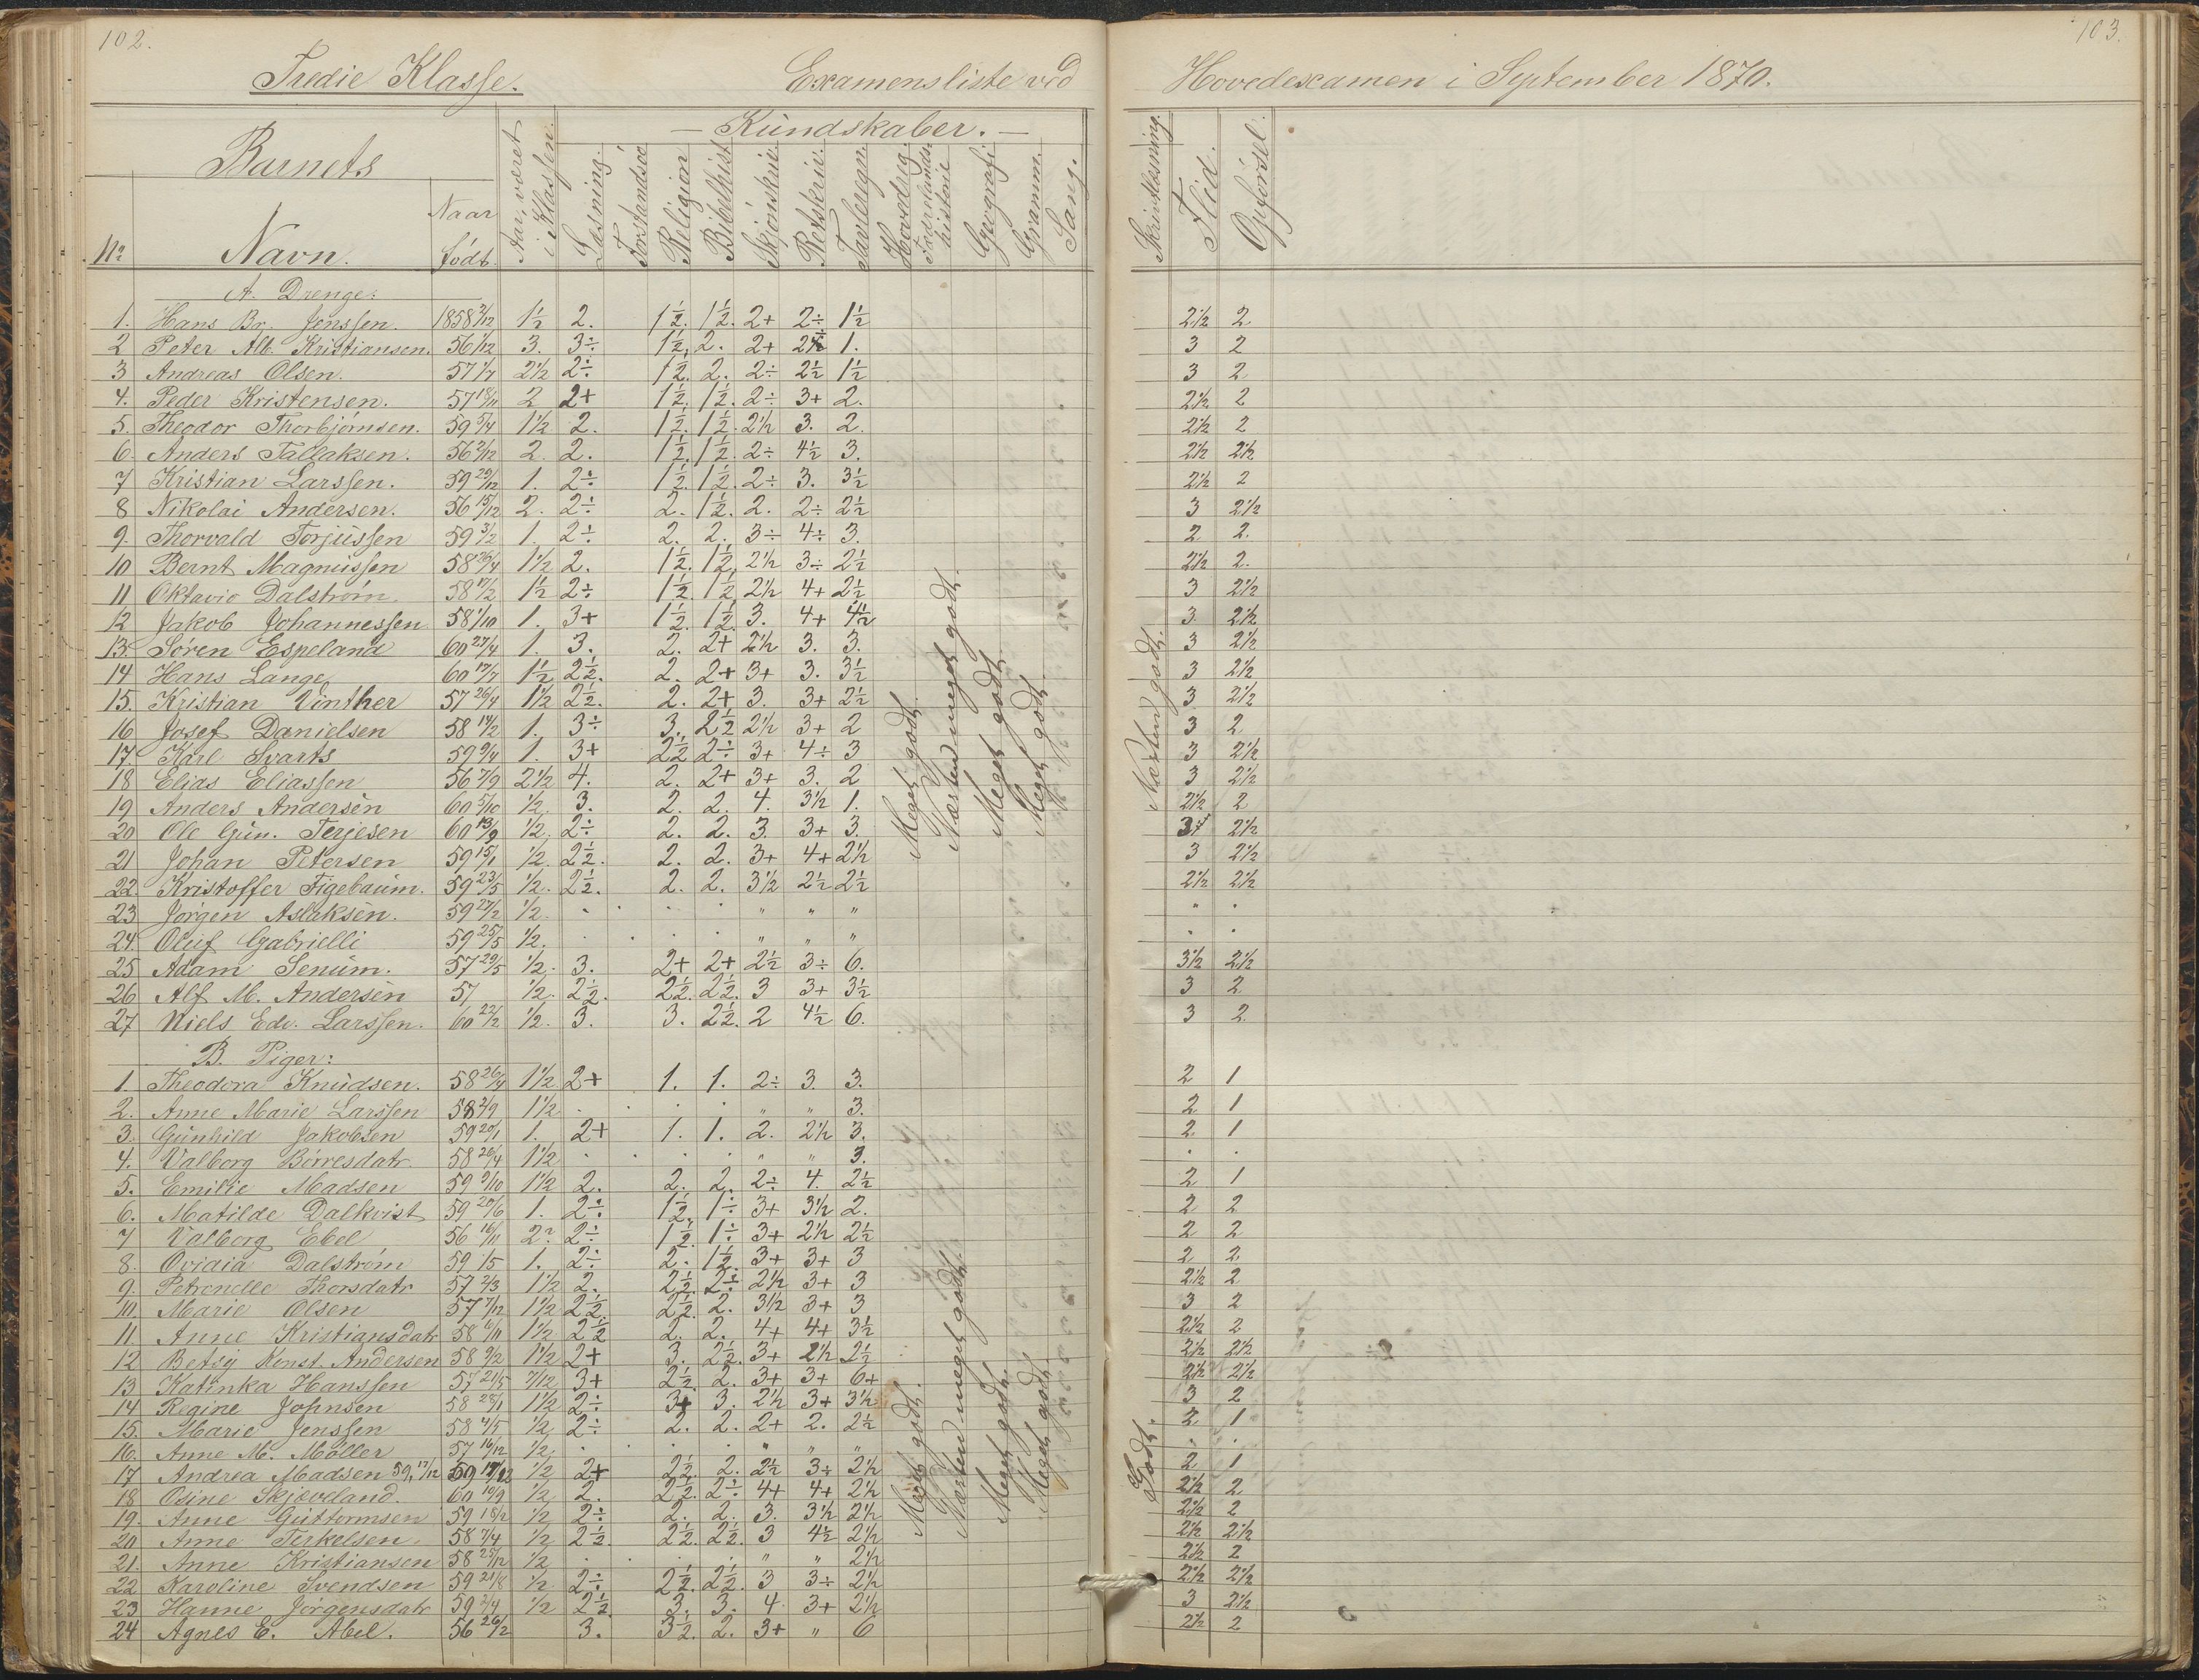 102.
103.
Tredie Klasse. Examensliste ved Hovedexamen i September 1870.
Barnets
Aar, været i Klassen.
— Kundskaber. —
No Navn. Naar Født. Læsning. Forstandsøv Religion Bibelhist. Skjönskriv. Retskriv. Tavleregn. Hovedreg. Fædrelands-historie Geografi Gramm. Sang. Skriftlæsning. Flid. Opförsel.
A. Drenge:
1. Hans Br. Jenssen. 1858 2/12 1½ 2. 1½. 1½. 2+ 2÷ 1½ 2½ 2
2 Peter Alb. Kristiansen. 56 1/12 3. 3÷ 1½. 2. 2+ 1. 3 2
3 Andreas Olsen. 57 1/7 2½ 2÷ 1½. 2. 2÷ 2½ 1½ 3 2
4. Peder Kristensen. 57 18/11 2 2+ 1½. 1½. 2÷ 3+ 2. 2½ 2
5. Theodor Thorbjörnsen. 59 5/4 1½ 2. 1½. 1½. 2½ 3. 2. 2½ 2
6. Anders Tallaksen. 56 2/12 2. 2. 1½. 1½. 2÷ 4½ 3. 2½ 2½
7 Kristian Larssen. 59 29/12 1. 2÷ 1½. 1½. 2÷ 3. 3½ 2½ 2
8 Nikolai Andersen. 56 15/12 2. 2÷ 2. 1½. 2. 2÷ 2½ 3 2½
9. Thorvald Torjussen 59 3/2 1. 2÷ 2. 2. 3÷ 4÷ 3. 2 2.
10 Bernt Magnussen 58 26/4 1½ 2. 1½. 1½. 2½ 3÷ 2½ 2½ 2.
11 Oktavio Dalström 58 17/2 1½ 2÷ 1½. 1½ 2½ 4+ 2½ 3 2½
12 Jakob Johannessen 58 1/10 1. 3+ 1½. 1½. 3. 4+ 4½ 3 2½
13. Sören Espeland 60 27/4 1. 3. 2. 2+ 2½ 3. 3. 3 2½
14 Hans Lange 60 17/7 1½ 2½. 2. 2+ 3+ 3. 3½ 3 2½
15. Kristian Vinther 57 26/4 1½ 2½. 2. 2+ 3. 3+ 2½ 3 2½
16 Josef Danielsen 58 14/2 1. 3÷ 3. 2½ 2½ 3+ 2 3 2
17. Karl Svarts 59 9/4 1. 3+ 2½ 2÷ 3+ 4÷ 3 3 2½
18 Elias Eliassen 56 2/9 2½ 4. 2. 2+ 3+ 3. 2 3 2½
19 Anders Andersen 60 5/10 ½ 3. 2. 2. 4. 3½ 1. 2½ 2
20 Ole Gun. Terjesen 60 13/9 ½. 2÷ 2. 2. 3. 3+ 3. 2½
21 Johan Petersen 59 15/1 ½. 2½. 2. 2. 3+ 4+ 2½ 3 2½
22. Kristoffer Figebaum. 59 23/5 ½. 2½. 2. 2. 3½ 2½ 2½ 2½ 2½
23 Jörgen Aslaksen. 59 27/2 ½. . . . . " " " " .
24. Oluf Gabrielli 59 25/5 ½. . . . . " " " . .
25 Adam Senum. 57 29/5 ½. 3. 2+ 2+ 2½ 3÷ 6. 3½ 2½
26 Alf M. Andersen 57 ½. 2½. 2½. 2½. 3 3+ 3½ 3 2
27 Niels Edv. Larssen. 60 22/2 ½. 3. 3. 2½. 2 4½ 6. 3 2
Meget godt. Næsten meget godt. Meget godt. Meget godt. Næsten godt.
B. Piger:
1. Theodora Knudsen. 58 26/4 1½ 2+ 1. 1. 2÷ 3. 3. 2 1
2. Anne Marie Larssen 58 2/9 1½ . . . . " " 3. 2 1
3. Gunhild Jakobsen 59 20/1 1. 2+ 1. 1. 2. 2½ 3. 2 1
4. Valborg Börresdatr. 58 26/4 1½ . . . . " " 3. . .
5. Emilie Madsen 59 9/10 1½ 2. 2. 2. 2÷ 4. 2½ 2 1
6. Matilde Dalkvist 59 20/6 1. 2÷ 1½ 1÷ 3+ 3½ 2. 2 2
7 Valborg Ebel 56 16/11 2? 2÷ 1½. 1÷ 3+ 2½ 2½ 2 2
8. Ovidia Dalström 59 1/5 1. 2÷ 2. 1½. 3+ 3+ 3 2 2
9. Petronelle Thorsdatr 57 2/3 1½ 2. 2½. 2÷ 2½ 3+ 3 2½ 2
10. Marie Olsen 57 7/12 1½ 2½ 2½. 2. 3½ 3+ 3 3 2
11. Anne Kristiansdatr 58 10/11 1½ 2½ 2. 2. 4+ 4+ 3½ 2½ 2
12 Betsy Konst. Andersen 58 9/2 1½ 2+ 3. 2½. 3+ 2½ 2½ 2½ 2½
13 Katinka Hanssen 57 21/5 7/12 3+ 2½. 2. 3+ 3+ 6+ 2½ 2½
14 Regine Johnsen 58 28/1 1½ 2÷ 3+ 3. 2½ 3+ 3½ 3 2
15. Marie Jenssen 58 4/5 ½ 2÷ 2. 2. 2+ 2. 2½ 2 1
16. Anne M. Möller 57 16/12 ½ . . . . " " " . .
17 Andrea Madsen 59, 17/12 ½ 2+ 2½. 2. 2½ 3÷ 2½ 2 1
18 Osine Skjæveland. 60 10/9 ½ 2. 2½. 2÷ 4+ 4+ 2½ 2½ 2
19. Anne Guttormsen 59 18/2 ½ 2÷ 2. 2. 3. 3½ 2½ 2½ 2
20 Anne Terkelsen 58 7/4 ½ 2½. 2½. 2½. 3 4½ 2½ 2½ 2½
21. Anne Kristiansen 58 25/12 ½ . . . . " " 2½ 2½ 2
22 Karoline Svendsen 59 21/8 ½ 2÷ 2½. 2½. 3 3÷ 2½ 2½ 2½
23 Hanne Jörgensdatr 59 2/4 ½ 2½ 3. 3. 4 3+ 2½ 3 2½
24 Agnes E. Abel. 56 26/2 3. 3½. 2. 3+ " 6 2½ 2
Meget godt. Næsten meget godt. Meget godt. Meget godt. Godt.